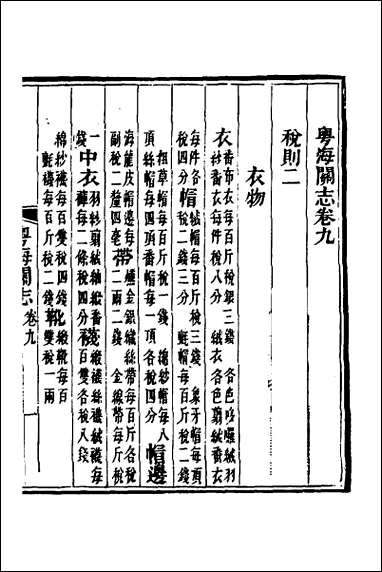 粵海關志卷九
稅則二
衣物
衣番布衣每百斤稅銀三錢 各色哆囉絨羽
紗番衣每件稅八分 絨衣各色剪絨番衣
每件各
稅四分帽絨帽每百斤稅三錢 象牙帽每頂
稅二錢三分 氈帽每百斤稅二錢
粗草帽每百斤稅一錢 線紗帽每八
頂絲帽每四頂番帽每一頂各稅四分 帽邊
海龍皮帽邊每
副稅二釐四毫帶金銀絨絲帶每百斤各稅
二兩二錢 金線帶每斤稅
一
錢中衣羽紗剪絨紬緞番
褲每二條稅四分襪緞襪絲襪絨襪每
百雙各稅八錢
綿紗襪每百雙稅四錢
氈襪每百斤稅二錢靴緞靴每百
雙稅一兩
粵海關志 卷九